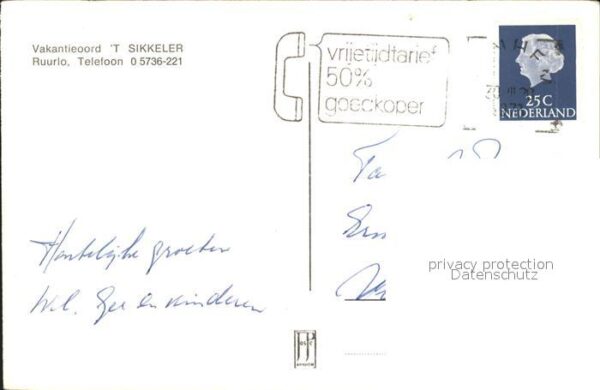 Vakantieoord 'T SIKKELER
Ruurlo, Telefoon 0 5736-221
vrijetijdtarief
50%
goedkoper
25 C
NEDERLAND
Hartelijke groeten
en kinderen
privacy protection
Datenschutz